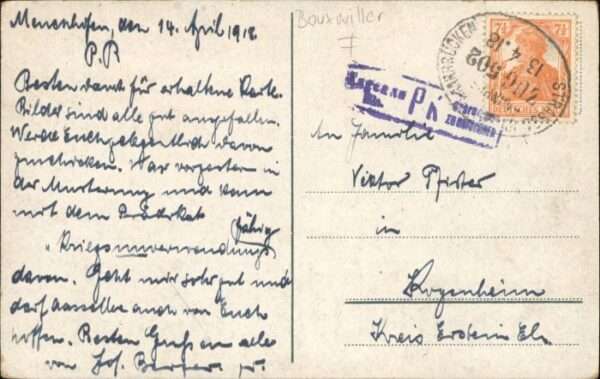 Menchhofen, den 14. April 1918
P.P.
Besten Dank für erhaltene Karte.
Bilder sind alle gut ausgefallen.
Werde Euch gelegentlich davon
zuschicken. War vorgestern in
der Musterung und kam
mit dem Prädikat
"Kriegsunverwendungs
fähig
davon. Geht mir sehr gut und
darf dasselbe auch von Euch
hoffen. Besten Gruß an alle
von Jos. Berger.
Bouxwiller
7
7½ 7½
SAARBRÜCKEN
ZUG 502
13.4.18
STRASSB
Zabern
Els.
P.K.
An Familie
Viktor Pfister
in
Kogenheim
Kreis Erstein Els.